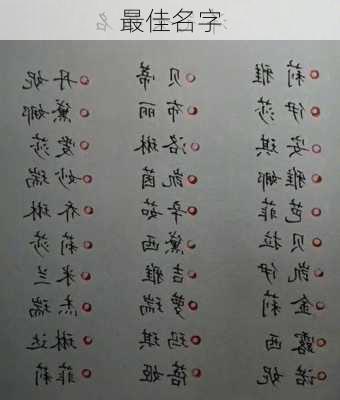 最佳名字
莉雅 贝蒂 丹妮
伊莎 布丽 黛娜
安琪 洛琳 爱莎
雅娜 凯茵 妙瑞
芭菲 茹 乔琳
贝拉 黛西 莉莎
凯伊 吉雅 米兰
金莉 萝瑞 杰瑞
露西 玛琪 琳达
诺妮 蓓姬 菲莉